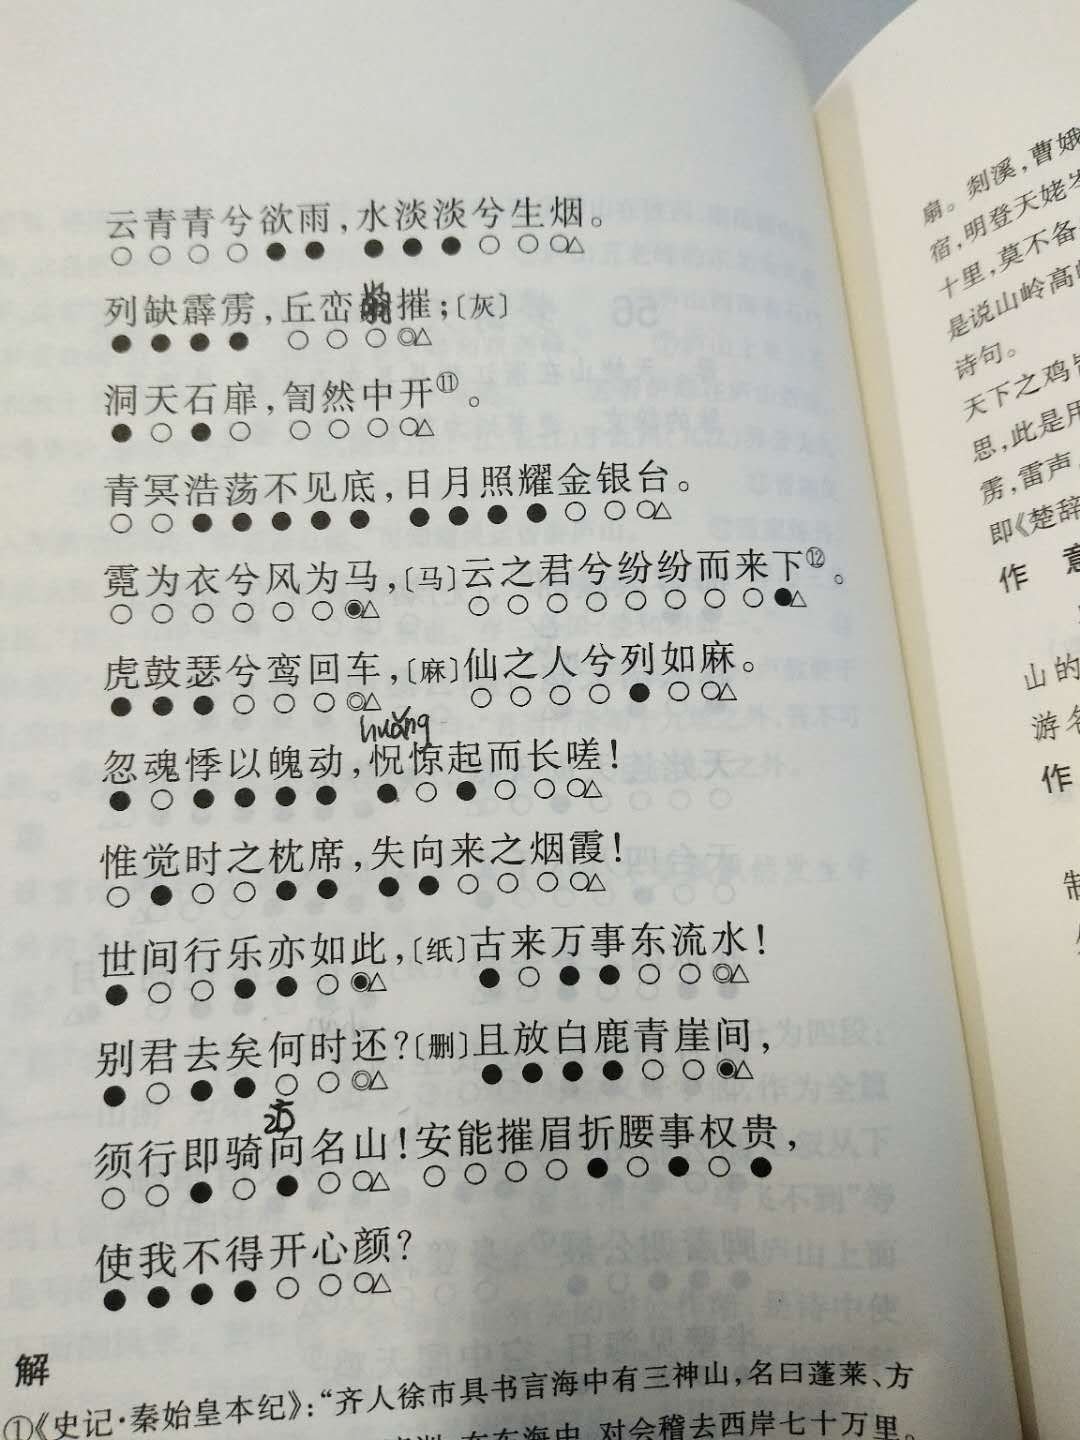 云青青兮欲雨，水淡淡兮生烟。
列缺霹雳，丘峦崩摧；〔灰〕
洞天石扉，訇然中开⑪。
青冥浩荡不见底，日月照耀金银台。
霓为衣兮风为马，〔马〕云之君兮纷纷而来下⑫。
虎鼓瑟兮鸾回车，〔麻〕仙之人兮列如麻。
huǎng
忽魂悸以魄动，怳惊起而长嗟！
惟觉时之枕席，失向来之烟霞！
世间行乐亦如此，〔纸〕古来万事东流水！
别君去矣何时还？〔删〕且放白鹿青崖间，
访
须行即骑向名山！安能摧眉折腰事权贵，
使我不得开心颜？
解
①《史记·秦始皇本纪》：“齐人徐市具书言海中有三神山，名曰蓬莱、方
在东海中，对会稽去西岸七十万里。
扇。剡溪，曹娥
宿，明登天姥岑
十里，莫不备
是说山岭高
诗句。
天下之鸡皆
思，此是用
雳，雷声，
即《楚辞
作 意
山的
游名
作
制
56